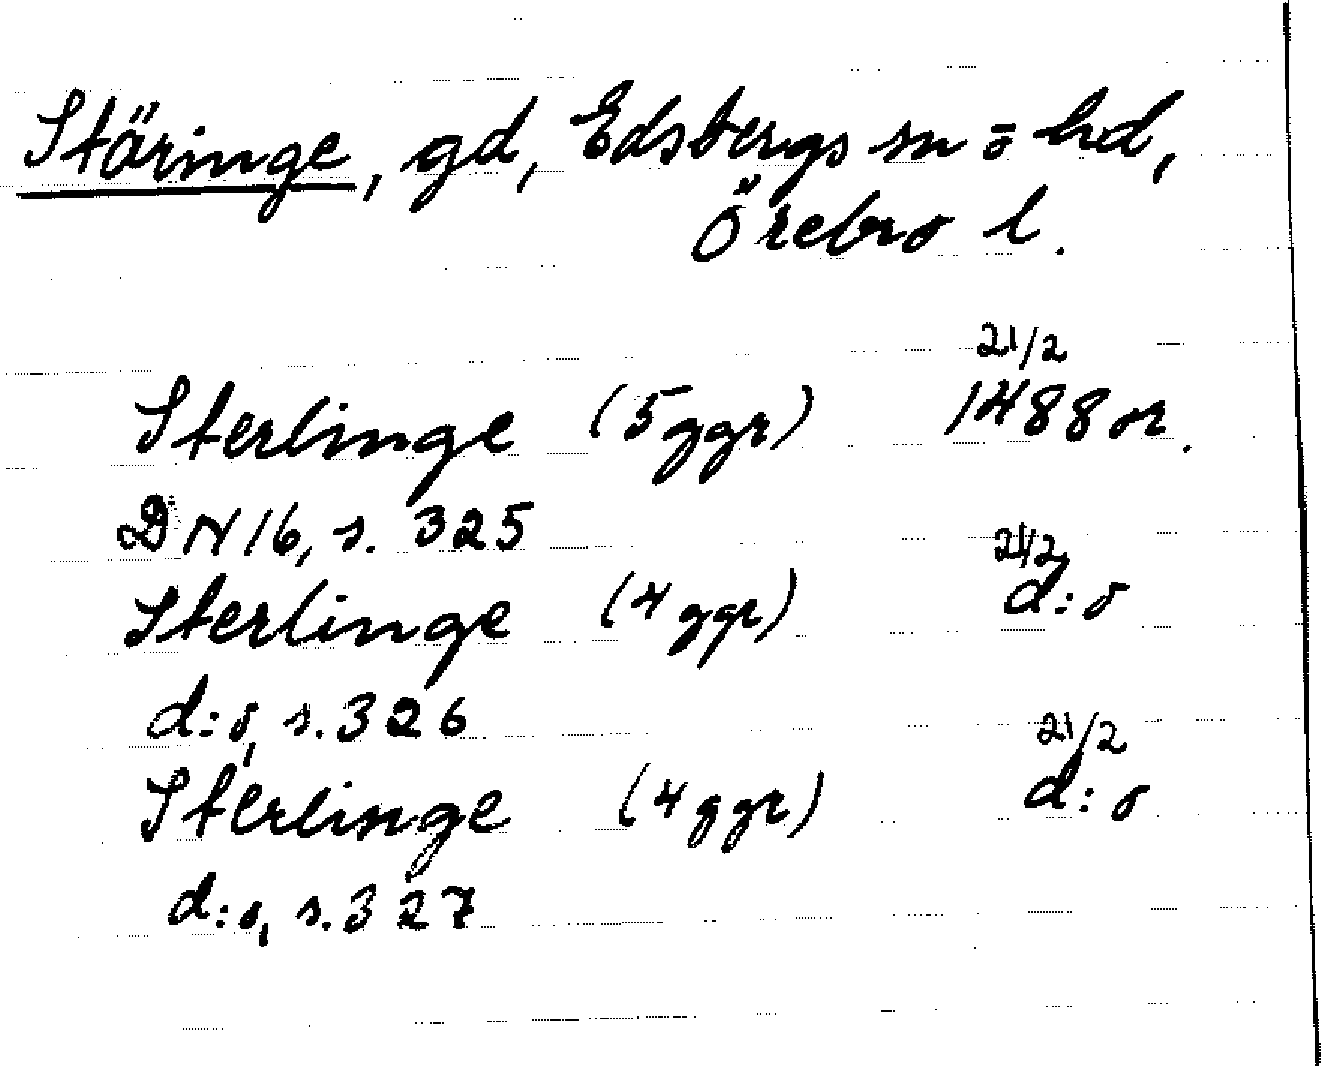 Stäringe, gd, Edsbergs sn o hd,
Örebro l.
Sterlinge (5 ggr) 21/2 1488 or.
DN 16, s. 325
Sterlinge (4 ggr) 21/2 d:o
d:o, s. 326
Sterlinge (4 ggr) 21/2 d:o
d:o, s. 327